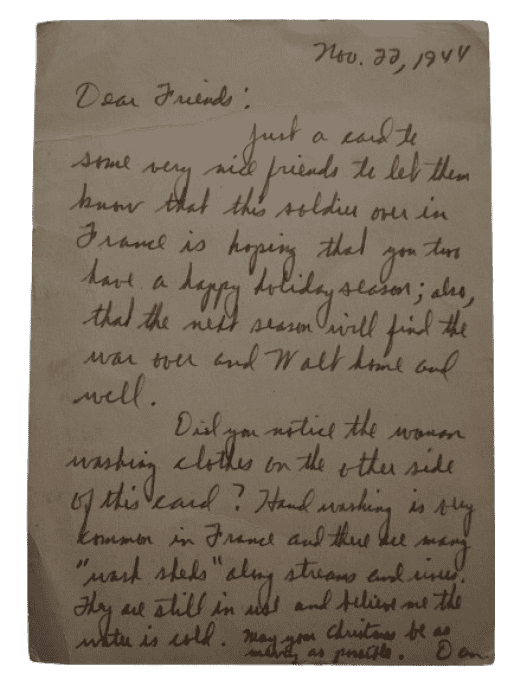 Nov. 22, 1944
Dear Friends:
Just a card to
some very nice friends to let them
know that this soldier over in
France is hoping that you two
have a happy holiday season; also,
that the next season will find the
war over and Walt home and
well.
Did you notice the woman
washing clothes on the other side
of this card? Hand washing is very
common in France and there are many
"wash sheds" along streams and rivers.
They are still in use and believe me the
water is cold. May your Christmas be as
merry as possible. Dan